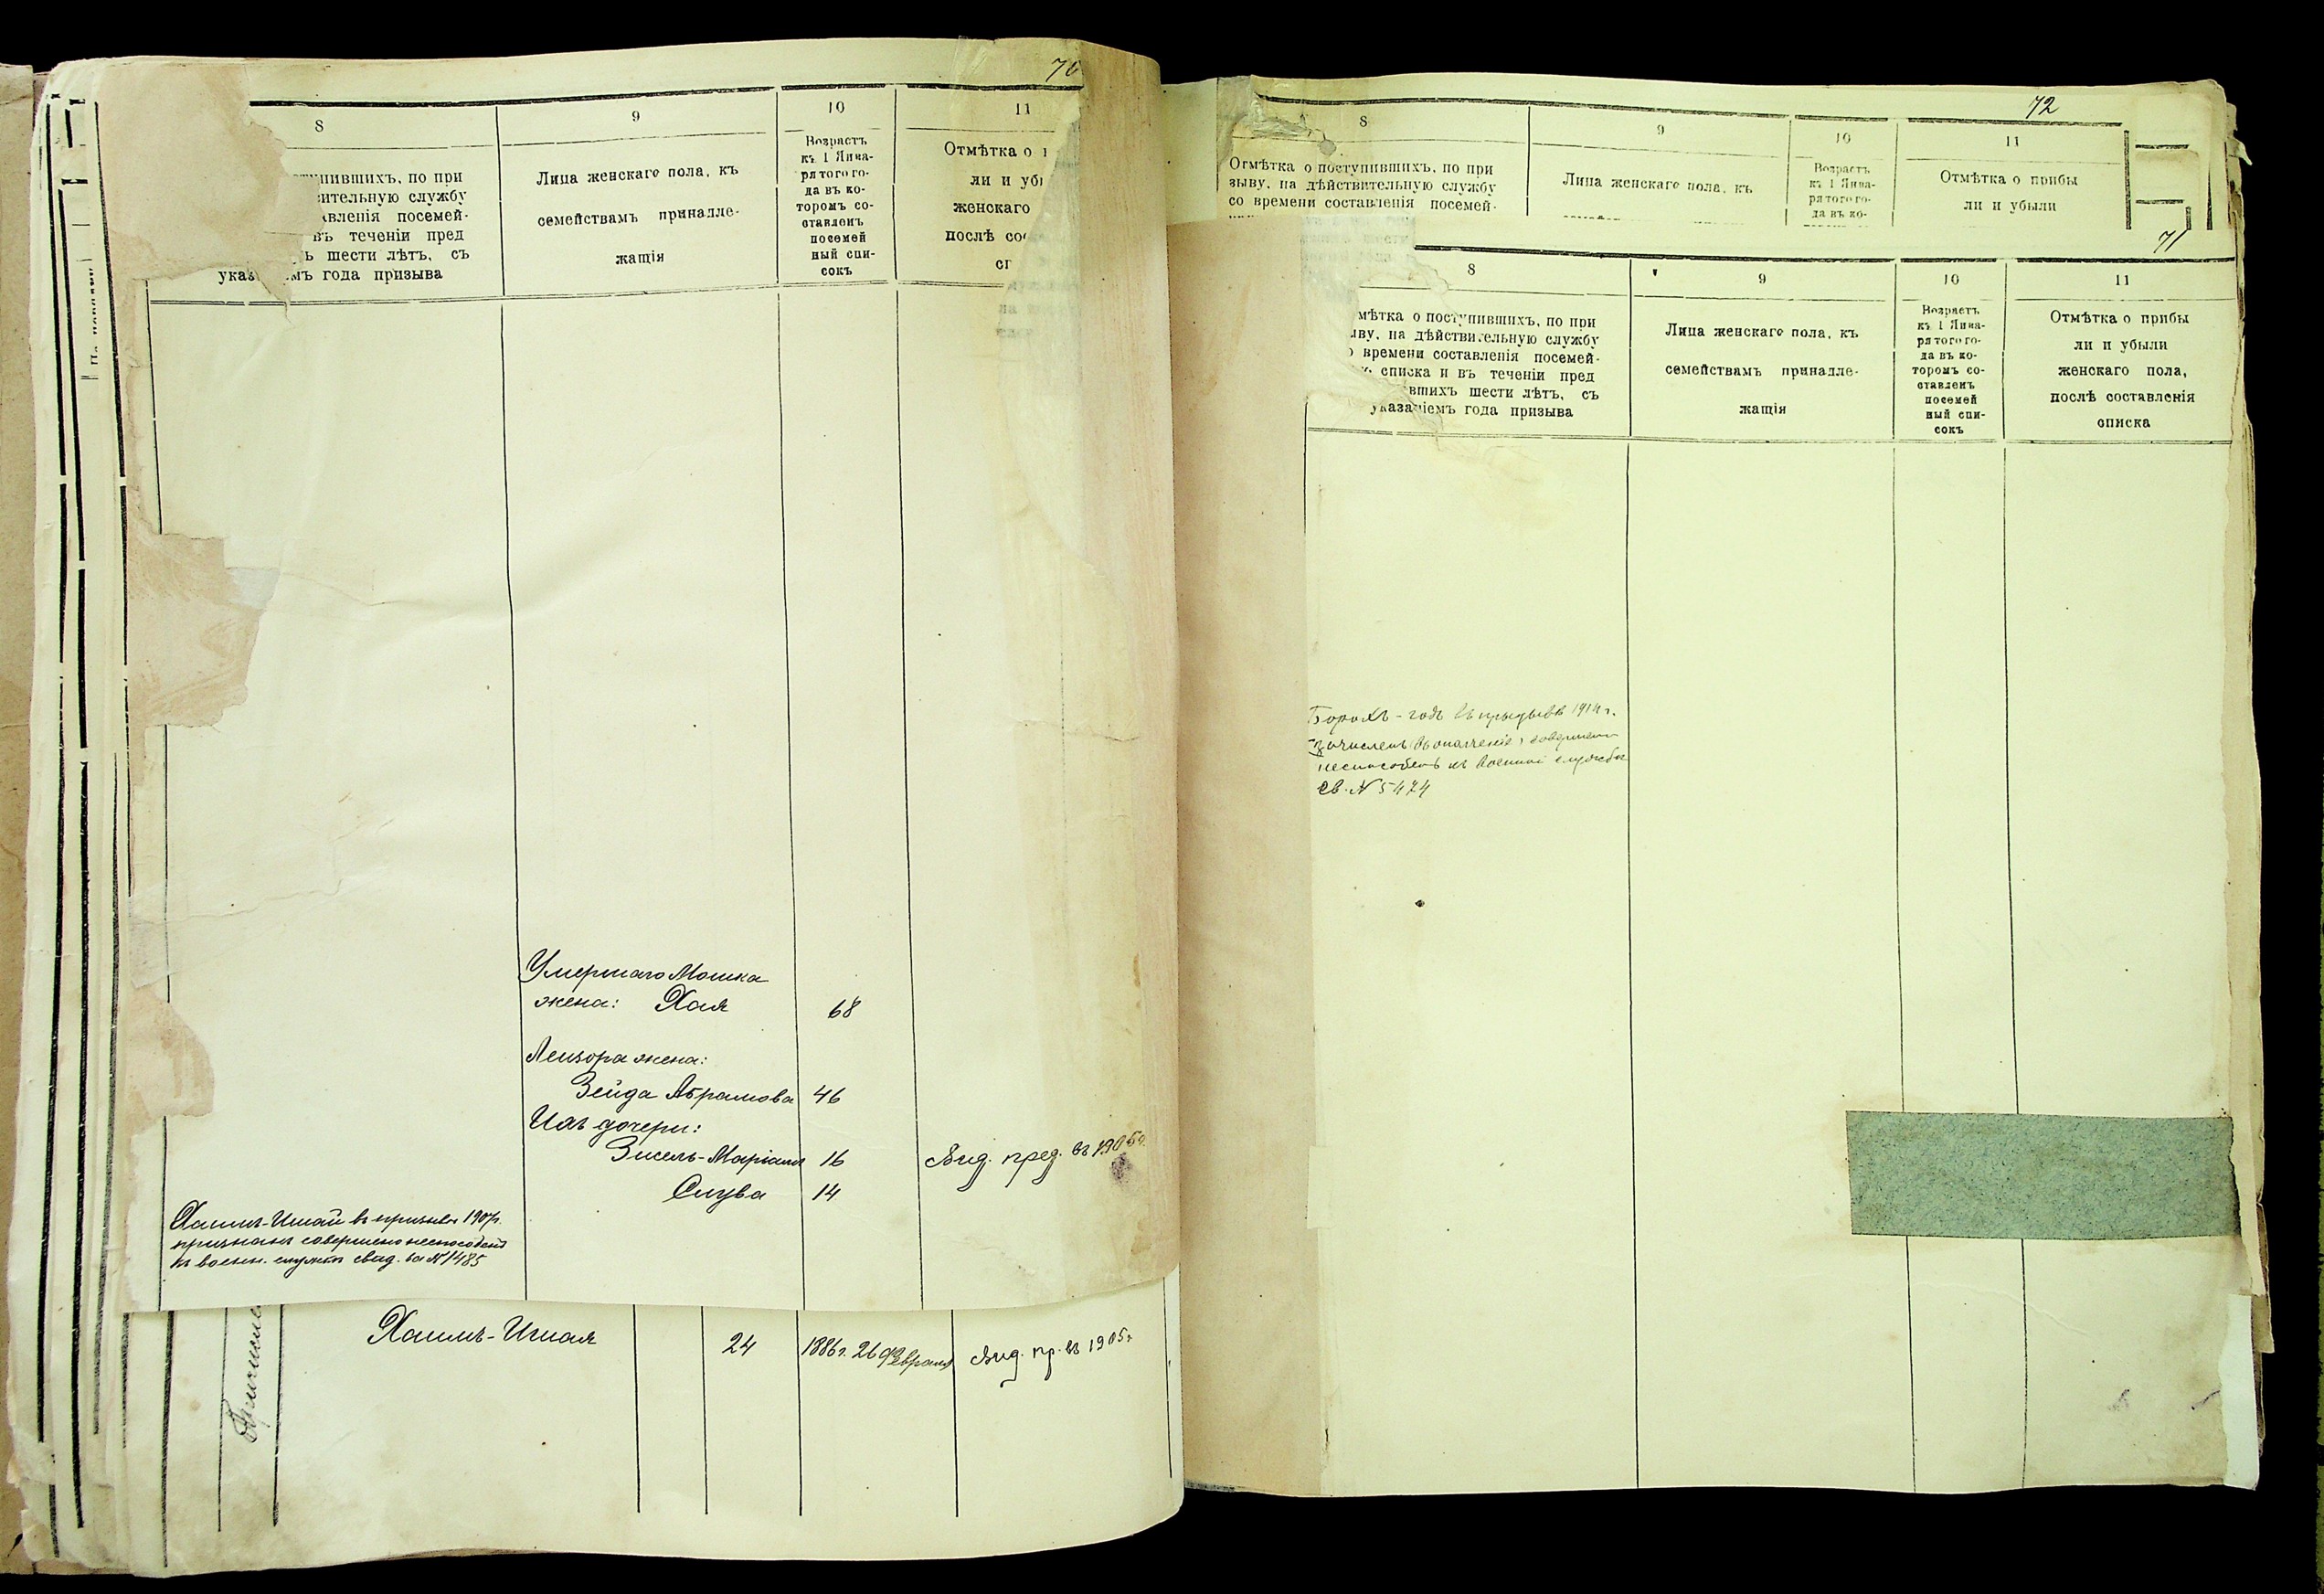 8
9
10
11
тупившихъ, по при
ительную службу
авленія посемей-
въ теченіи пред
ъ шести лѣтъ, съ
указ мъ года призыва
Лица женскаго пола, къ
семействамъ принадле-
жащія
Возрастъ
къ 1 Янва-
ря того го-
да въ ко-
торомъ со-
ставленъ
посемей
ный спи-
сокъ
Отмѣтка о
ли и уб
женскаго
послѣ со
сп
Умершаго Мошка
жена: Хая 68
Лейзора жена:
Зейда Абрамова 46
Ихъ дочери:
Зисель-Маріаша 16 Вид. пред. въ 1905 г.
Слува 14
Хаимъ-Ишай въ призывъ 1907 г.
признанъ совершено неспособенъ
къ воен. службѣ свид. за № 1485
Хаимъ-Ишая 24 1886 г. 26 Февраля Вид. пр. въ 1905 г.
72
8
9
10
11
Отмѣтка о поступившихъ, по при
зыву, на дѣйствительную службу
со времени составленія посемей-
Лица женскаго пола, къ
Возрастъ
къ 1 Янва-
ря того го-
да въ ко-
Отмѣтка о прибы
ли и убыли
71
8
9
10
11
мѣтка о поступившихъ, по при
ыву, на дѣйствительную службу
о времени составленія посемей-
списка и въ теченіи пред
вшихъ шести лѣтъ, съ
указаніемъ года призыва
Лица женскаго пола, къ
семействамъ принадле-
жащія
Возрастъ
къ 1 Янва-
ря того го-
да въ ко-
торомъ со-
ставленъ
посемей
ный спи-
сокъ
Отмѣтка о прибы
ли и убыли
женскаго пола,
послѣ составленія
списка
Борохъ - годъ въ призывѣ 1914 г.
зачисленъ въ ополченіе, совершено
неспособенъ къ военной службѣ
св. № 5474